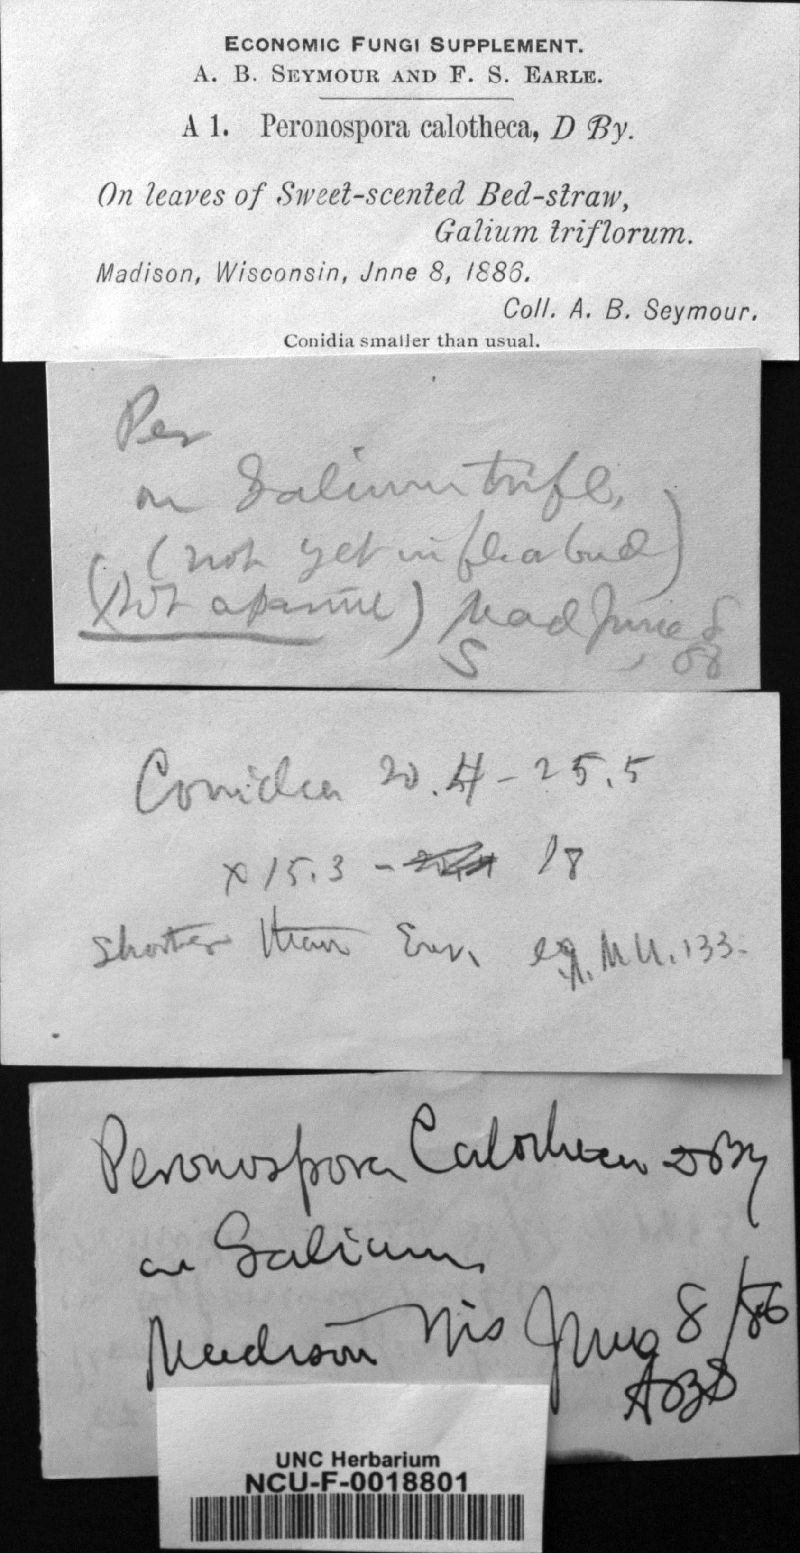 ECONOMIC FUNGI SUPPLEMENT.
A. B. SEYMOUR AND F. S. EARLE.
A 1. Peronospora calotheca, D By.
On leaves of Sweet-scented Bed-straw,
Galium triflorum.
Madison, Wisconsin, Jnne 8, 1886.
Coll. A. B. Seymour.
Conidia smaller than usual.
Per
on Galium trifl.
(not yet in fl or bud)
(Not aparine) Mad June 8
S
Conidia 20.4 - 25.5
x 15.3 - 18
Shorter than Eur. eg. M U. 133.
Peronospora Calotheca DBy
on Galium
Madison Wis June 8/86
ABS
UNC Herbarium
NCU-F-0018801